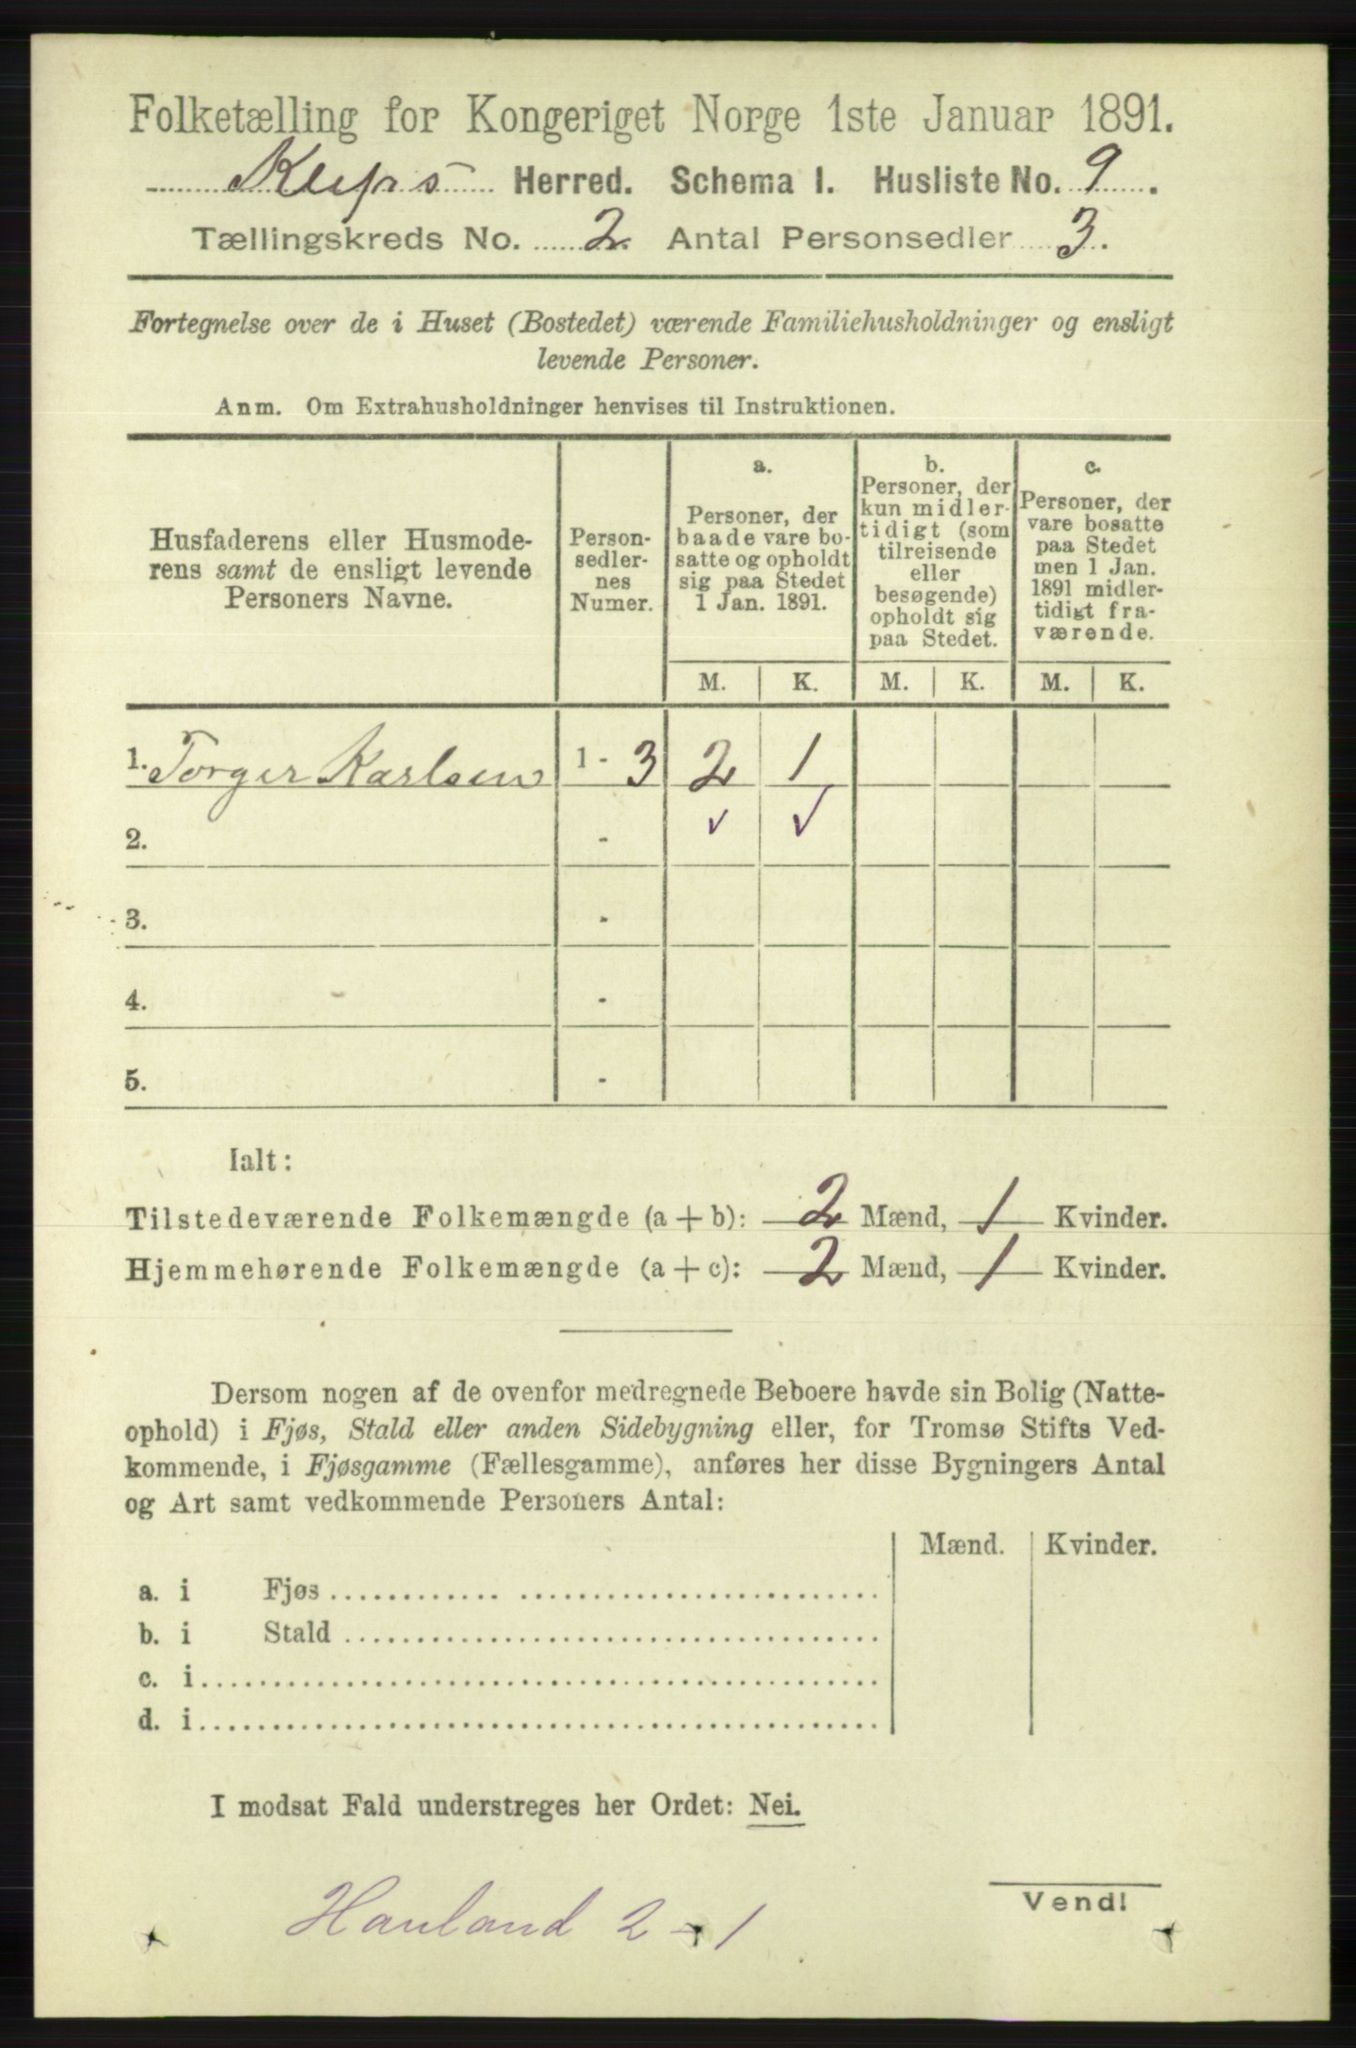 Folketælling for Kongeriget Norge 1ste Januar 1891.
Kleps Herred. Schema I. Husliste No. 9.
Tællingskreds No. 2. Antal Personsedler 3.
Fortegnelse over de i Huset (Bostedet) værende Familiehusholdninger og ensligt
levende Personer.
Anm. Om Extrahusholdninger henvises til Instruktionen.
Husfaderens eller Husmode-
rens samt de ensligt levende
Personers Navne.
Person-
sedler-
nes
Numer.
a.
Personer, der
baade vare bo-
satte og opholdt
sig paa Stedet
1 Jan. 1891.
b.
Personer, der
kun midler-
tidigt (som
tilreisende
eller
besøgende)
opholdt sig
paa Stedet.
c.
Personer, der
vare bosatte
paa Stedet
men 1 Jan.
1891 midler-
tidigt fra-
værende.
M. K. M. K. M. K.
1. Torger Karlsen 1 - 3 2 1
2. - ✓ ✓
3. -
4. -
5. -
Ialt:
Tilstedeværende Folkemængde (a + b): 2 Mænd, 1 Kvinder.
Hjemmehørende Folkemængde (a + c): 2 Mænd, 1 Kvinder.
Dersom nogen af de ovenfor medregnede Beboere havde sin Bolig (Natte-
ophold) i Fjøs, Stald eller anden Sidebygning eller, for Tromsø Stifts Ved-
kommende, i Fjøsgamme (Fællesgamme), anføres her disse Bygningers Antal
og Art samt vedkommende Personers Antal:
Mænd. Kvinder.
a. i Fjøs
b. i Stald
c. i
d. i
I modsat Fald understreges her Ordet: Nei.
Vend!
Hauland 2 - 1